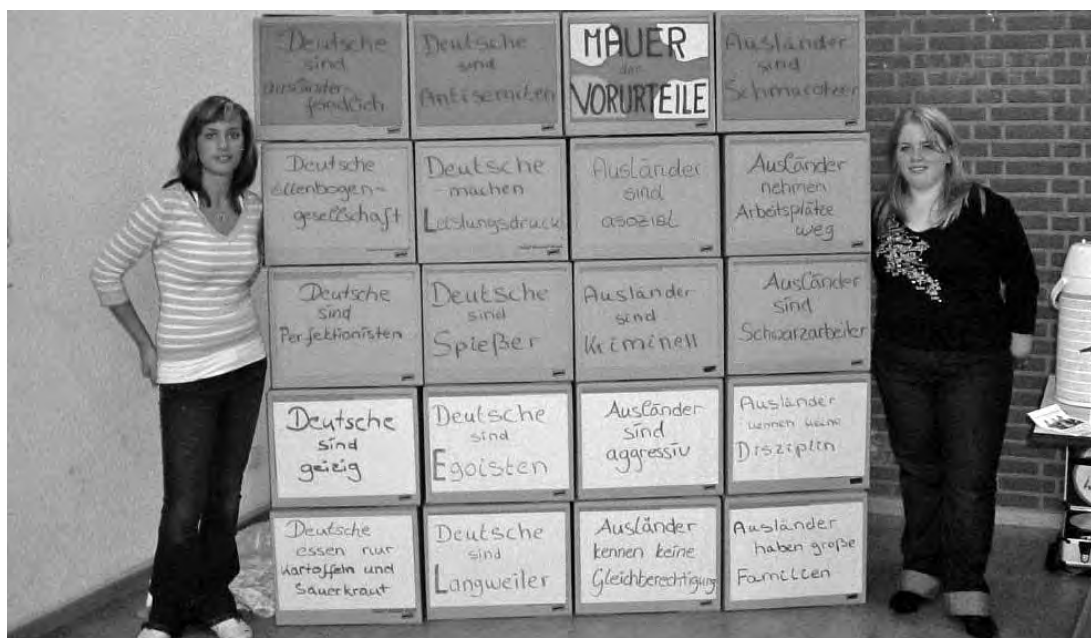 Deutsche
sind
ausländer
feindlich
Deutsche
sind
Antisemiten
MAUER
der
VORURTEILE
Ausländer
sind
Schmarotzer
Deutsche
Ellenbogen-
gesellschaft
Deutsche
machen
Leistungsdruck
Ausländer
sind
asozial
Ausländer
nehmen
Arbeitsplätze
weg
Deutsche
sind
Perfektionisten
Deutsche
sind
Spießer
Ausländer
sind
Kriminell
Ausländer
sind
Schwarzarbeiter
Deutsche
sind
geizig
Deutsche
sind
Egoisten
Ausländer
sind
aggressiv
Ausländer
kennen keine
Disziplin
Deutsche
essen nur
Kartoffeln und
Sauerkraut
Deutsche
sind
Langweiler
Ausländer
kennen keine
Gleichberechtigung
Ausländer
haben große
Familien